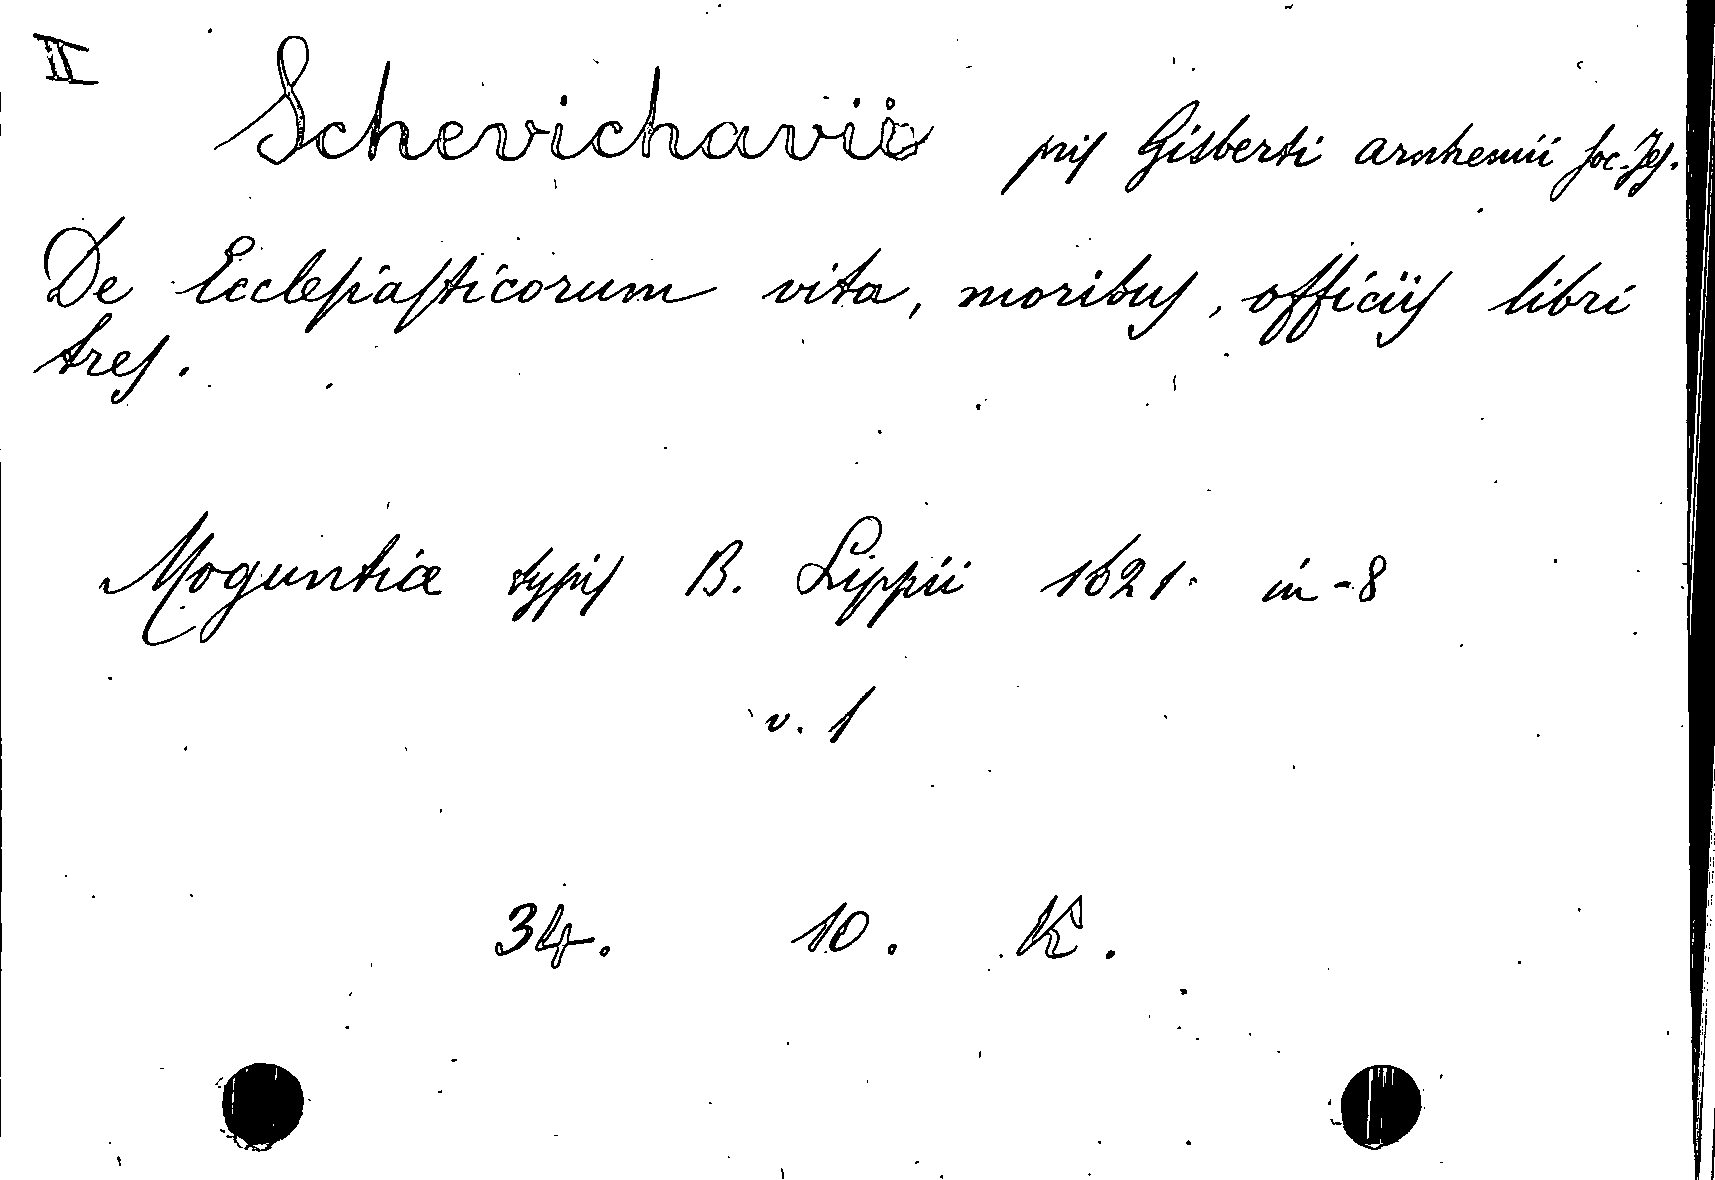 II
Schevichavii pris Gisberti arnhemii Soc. Jes.
De Ecclesiasticorum vita, moribus, officiis libri
tres.
Moguntiæ typis B. Lippii 1621. in-8
v. 1
34. 10. K.